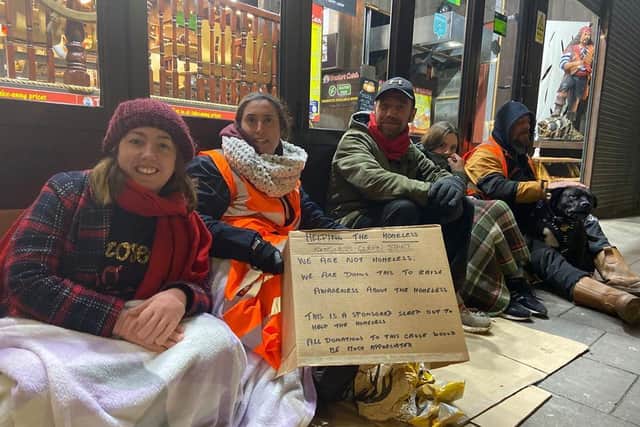 HELPING THE HOMELESS
WE ARE NOT HOMELESS.
WE ARE DOING THIS TO RAISE
AWARENESS ABOUT THE HOMELESS
THIS IS A SPONSORED SLEEP OUT TO
HELP THE HOMELESS
ALL DONATIONS TO THIS CAUSE WOULD
BE MUCH APPRECIATED